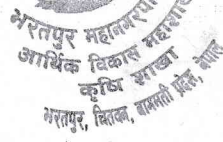 भरतपुर महानगरपा
आर्थिक विकास महाशा
कृषि शाखा
भरतपुर, चितवन, बागमती प्रदेश, नेपाल